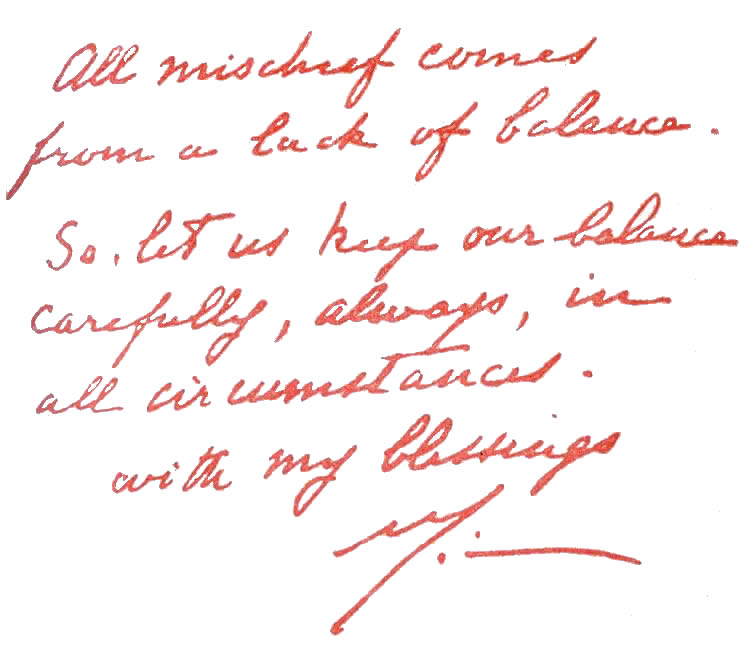 All mischief comes
from a lack of balance.
So, let us keep our balance
carefully, always, in
all circumstances.
with my blessings